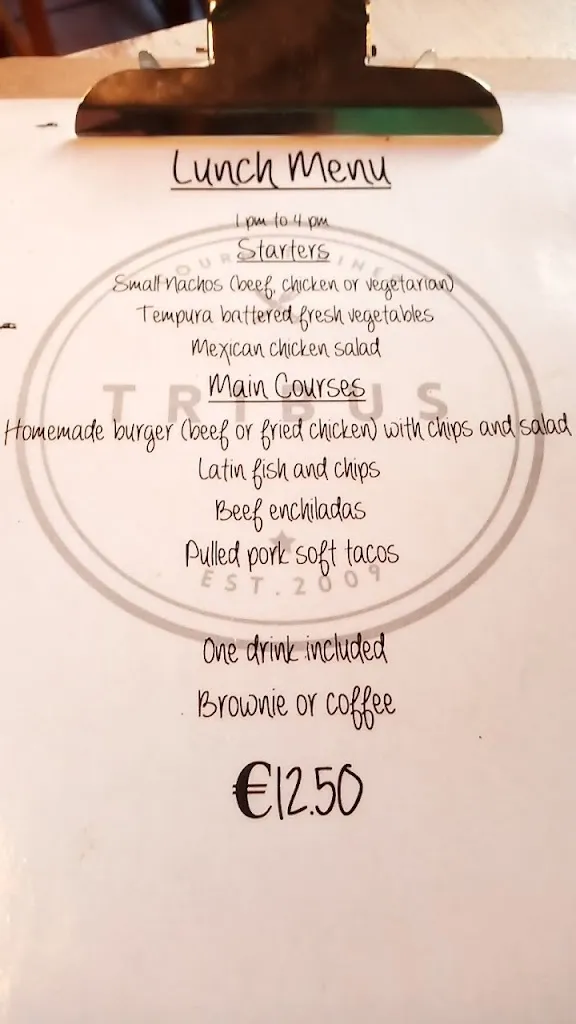 Lunch Menu
1 pm to 4 pm
Starters
Small Nachos (beef, chicken or vegetarian)
Tempura battered fresh vegetables
Mexican chicken salad
Main Courses
TRIBUS
Homemade burger (beef or fried chicken) with chips and salad
Latin fish and chips
Beef enchiladas
Pulled pork soft tacos
EST. 2009
One drink included
Brownie or coffee
€12.50